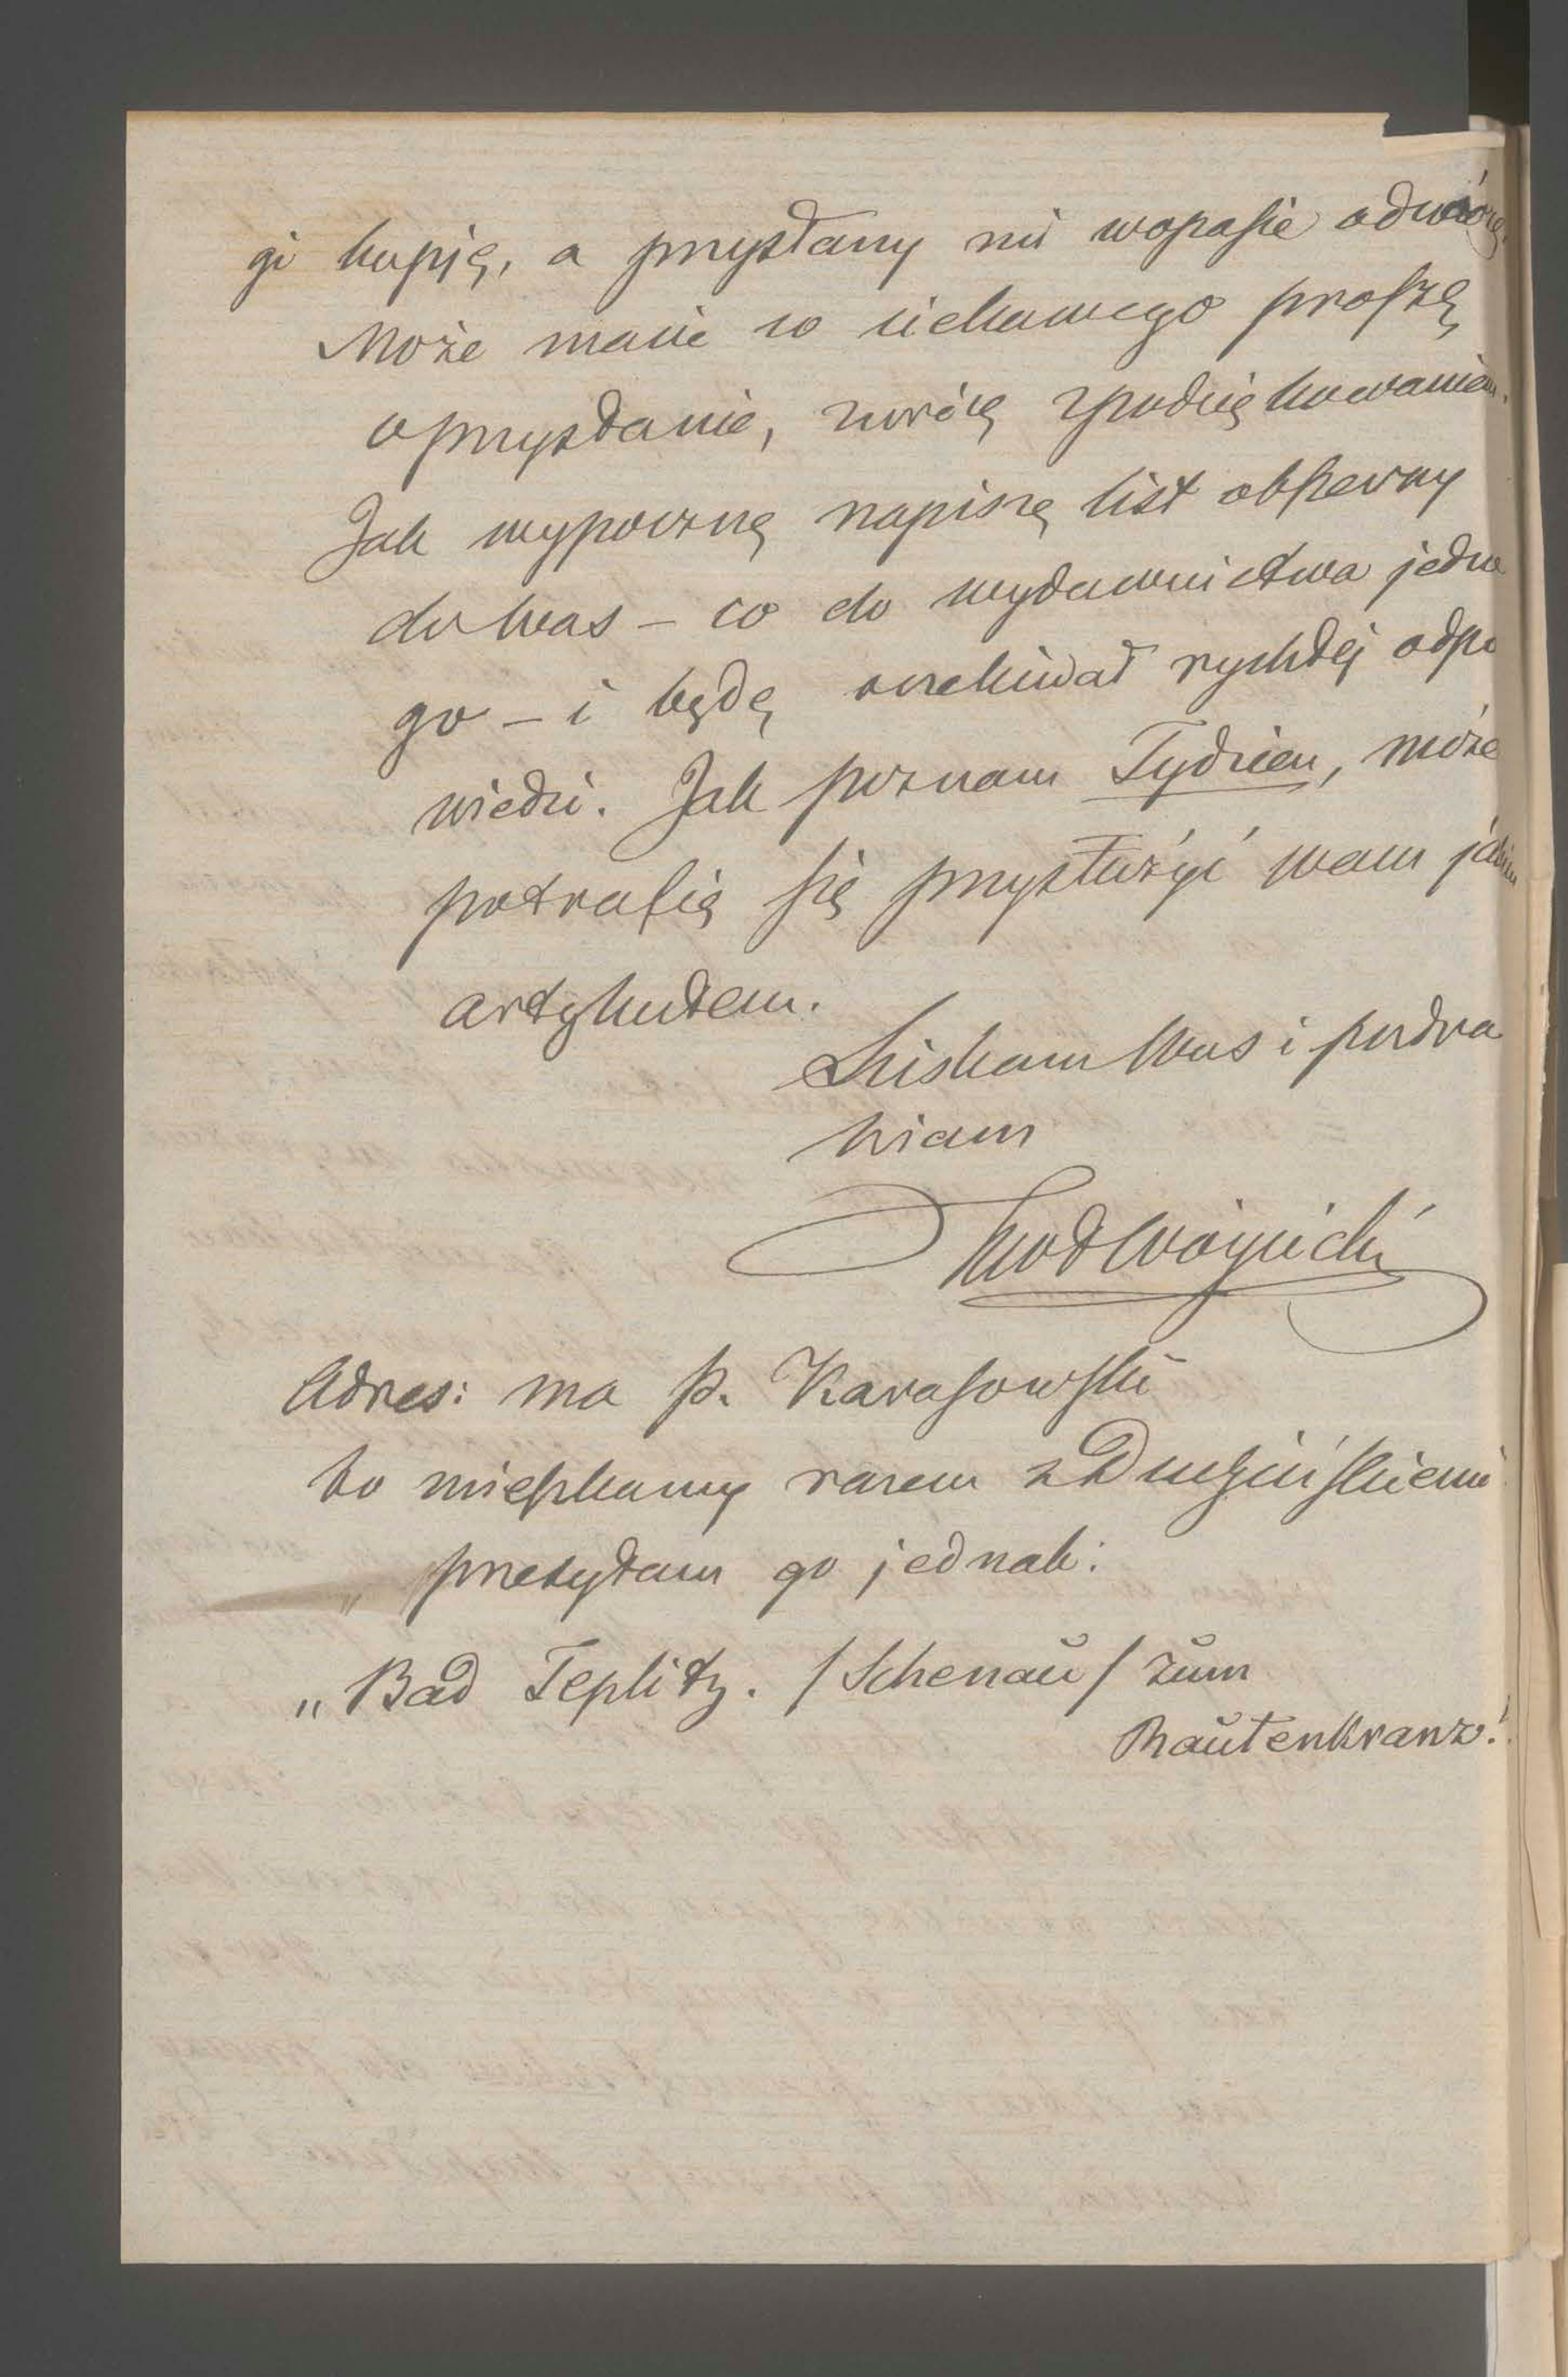 gi kupię, a przysłany mi wopasie odwiozę.
Może macie co ciekawego proszę
o przysłanie, zwrócę zpodziękowaniem.
Jak wypoczną napiszę list obszerny
do was – co do wydawnictwa jedne
go – i będę oczekiwał rychłéj odpo
wiedzi. Jak poznam Tydzien, może
potrafię się przysłużyć wam jakim
artykułem.
Sciskam Was i pozdra
wiam
KWł Wóycicki
Adres: ma p. Karasowski
bo mieszkamy razem z Duszyńskiemi
przesyłam go jednak:
„Bad Teplitz. /Schenaŭ/ zŭm
Raŭtenkranz."